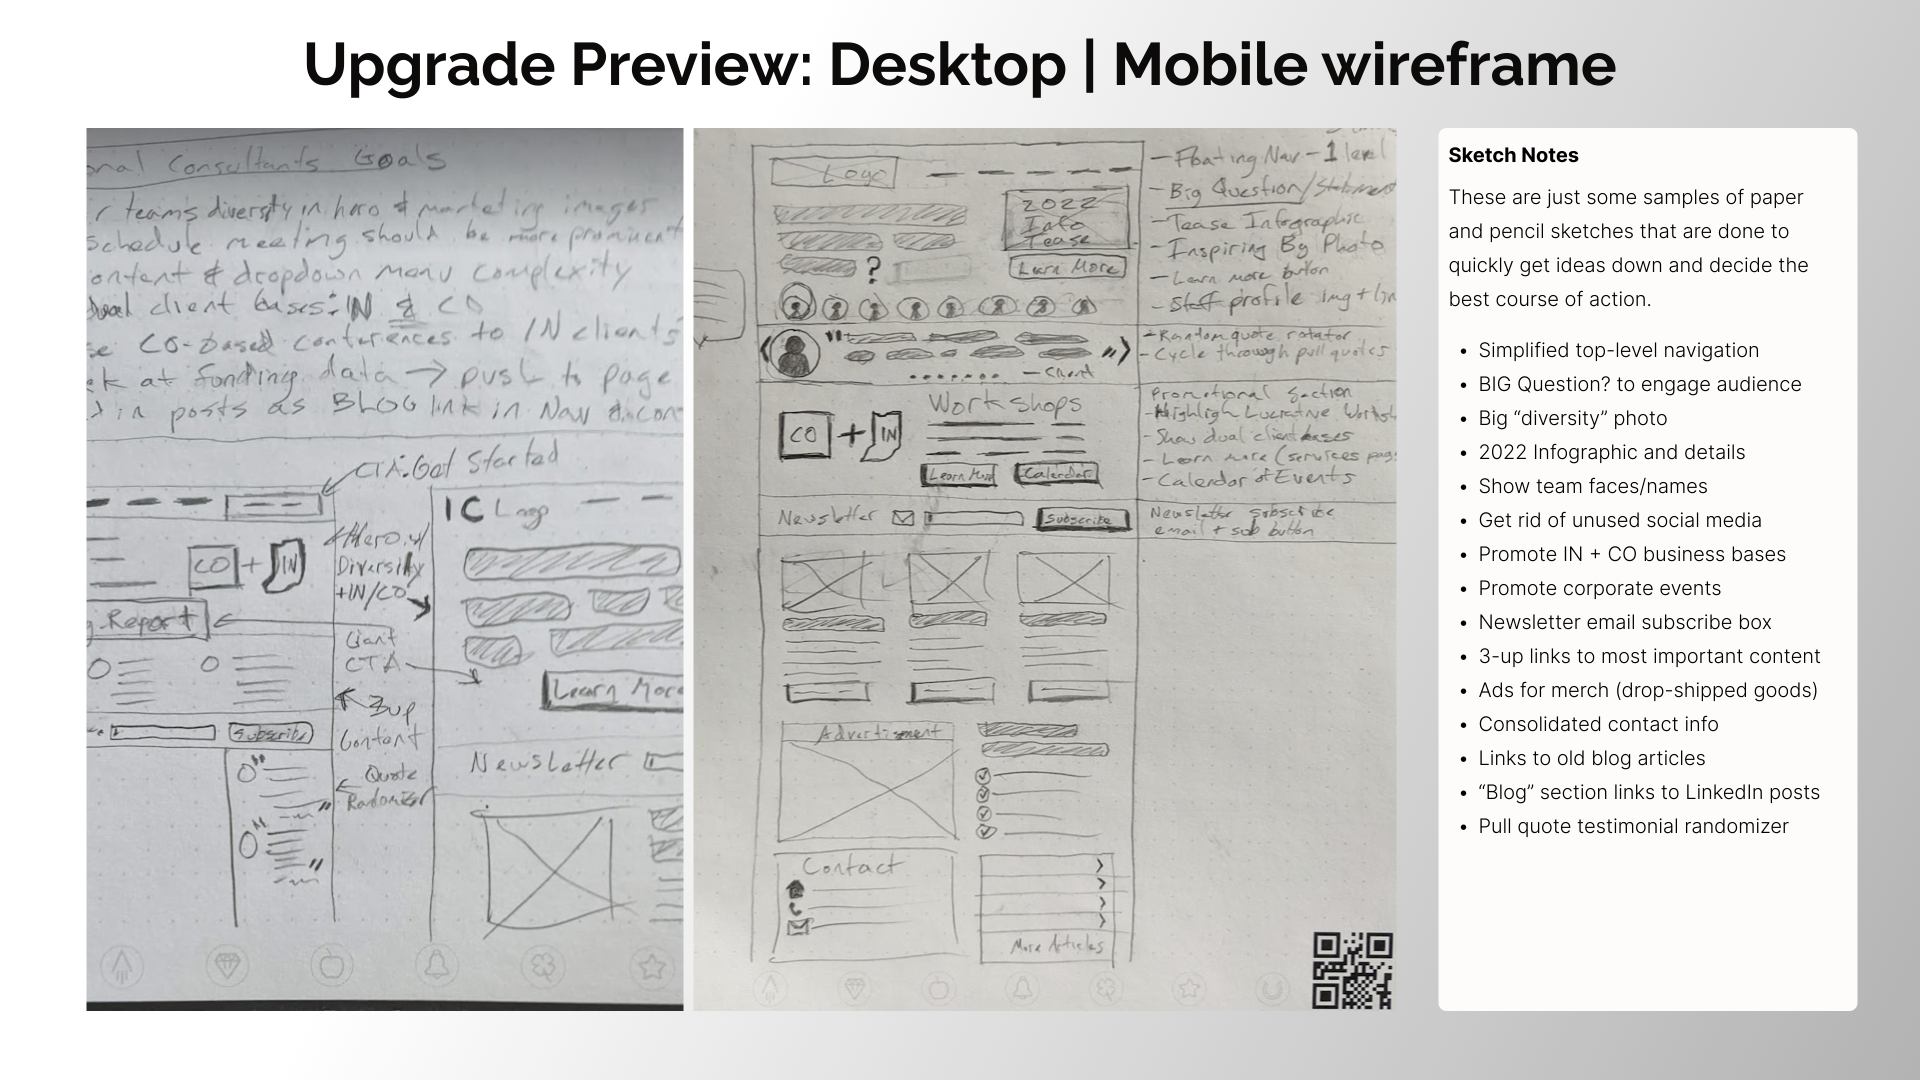 Upgrade Preview: Desktop | Mobile wireframe
onal Consultants Goals
r team's diversity in hero & marketing images
schedule meeting should be more prominent
ontent & dropdown menu complexity
dual client bases: IN & CO
se CO-based conferences to IN clients
ek at funding data → push to page
d in posts as BLOG link in Nav & con
CTA: Get Started
CO + IN
Hero w/
Diversity
+IN/CO
g Report
Giant
CTA
3up
Content
Subscribe
Quote
Randomizer
IC Logo
Learn More
Newsletter
Logo
2022
Info
Tease
Learn More
?
- Client
CO + IN
Workshops
Learn More
Calendar
Newsletter
Subscribe
Advertisement
Contact
More Articles
- Floating Nav - 1 level
- Big Question/Statement
- Tease Infographic
- Inspiring Big Photo
- Learn more button
- Staff profile img + lin
- Random quote rotator
- Cycle through pull quotes
Promotional Section
- Highligh Lucrative Worksh
- Show dual client bases
- Learn more (services pag
- Calendar of Events
Newsletter subscribe
email + sub button
Sketch Notes
These are just some samples of paper
and pencil sketches that are done to
quickly get ideas down and decide the
best course of action.
• Simplified top-level navigation
• BIG Question? to engage audience
• Big “diversity” photo
• 2022 Infographic and details
• Show team faces/names
• Get rid of unused social media
• Promote IN + CO business bases
• Promote corporate events
• Newsletter email subscribe box
• 3-up links to most important content
• Ads for merch (drop-shipped goods)
• Consolidated contact info
• Links to old blog articles
• “Blog” section links to LinkedIn posts
• Pull quote testimonial randomizer